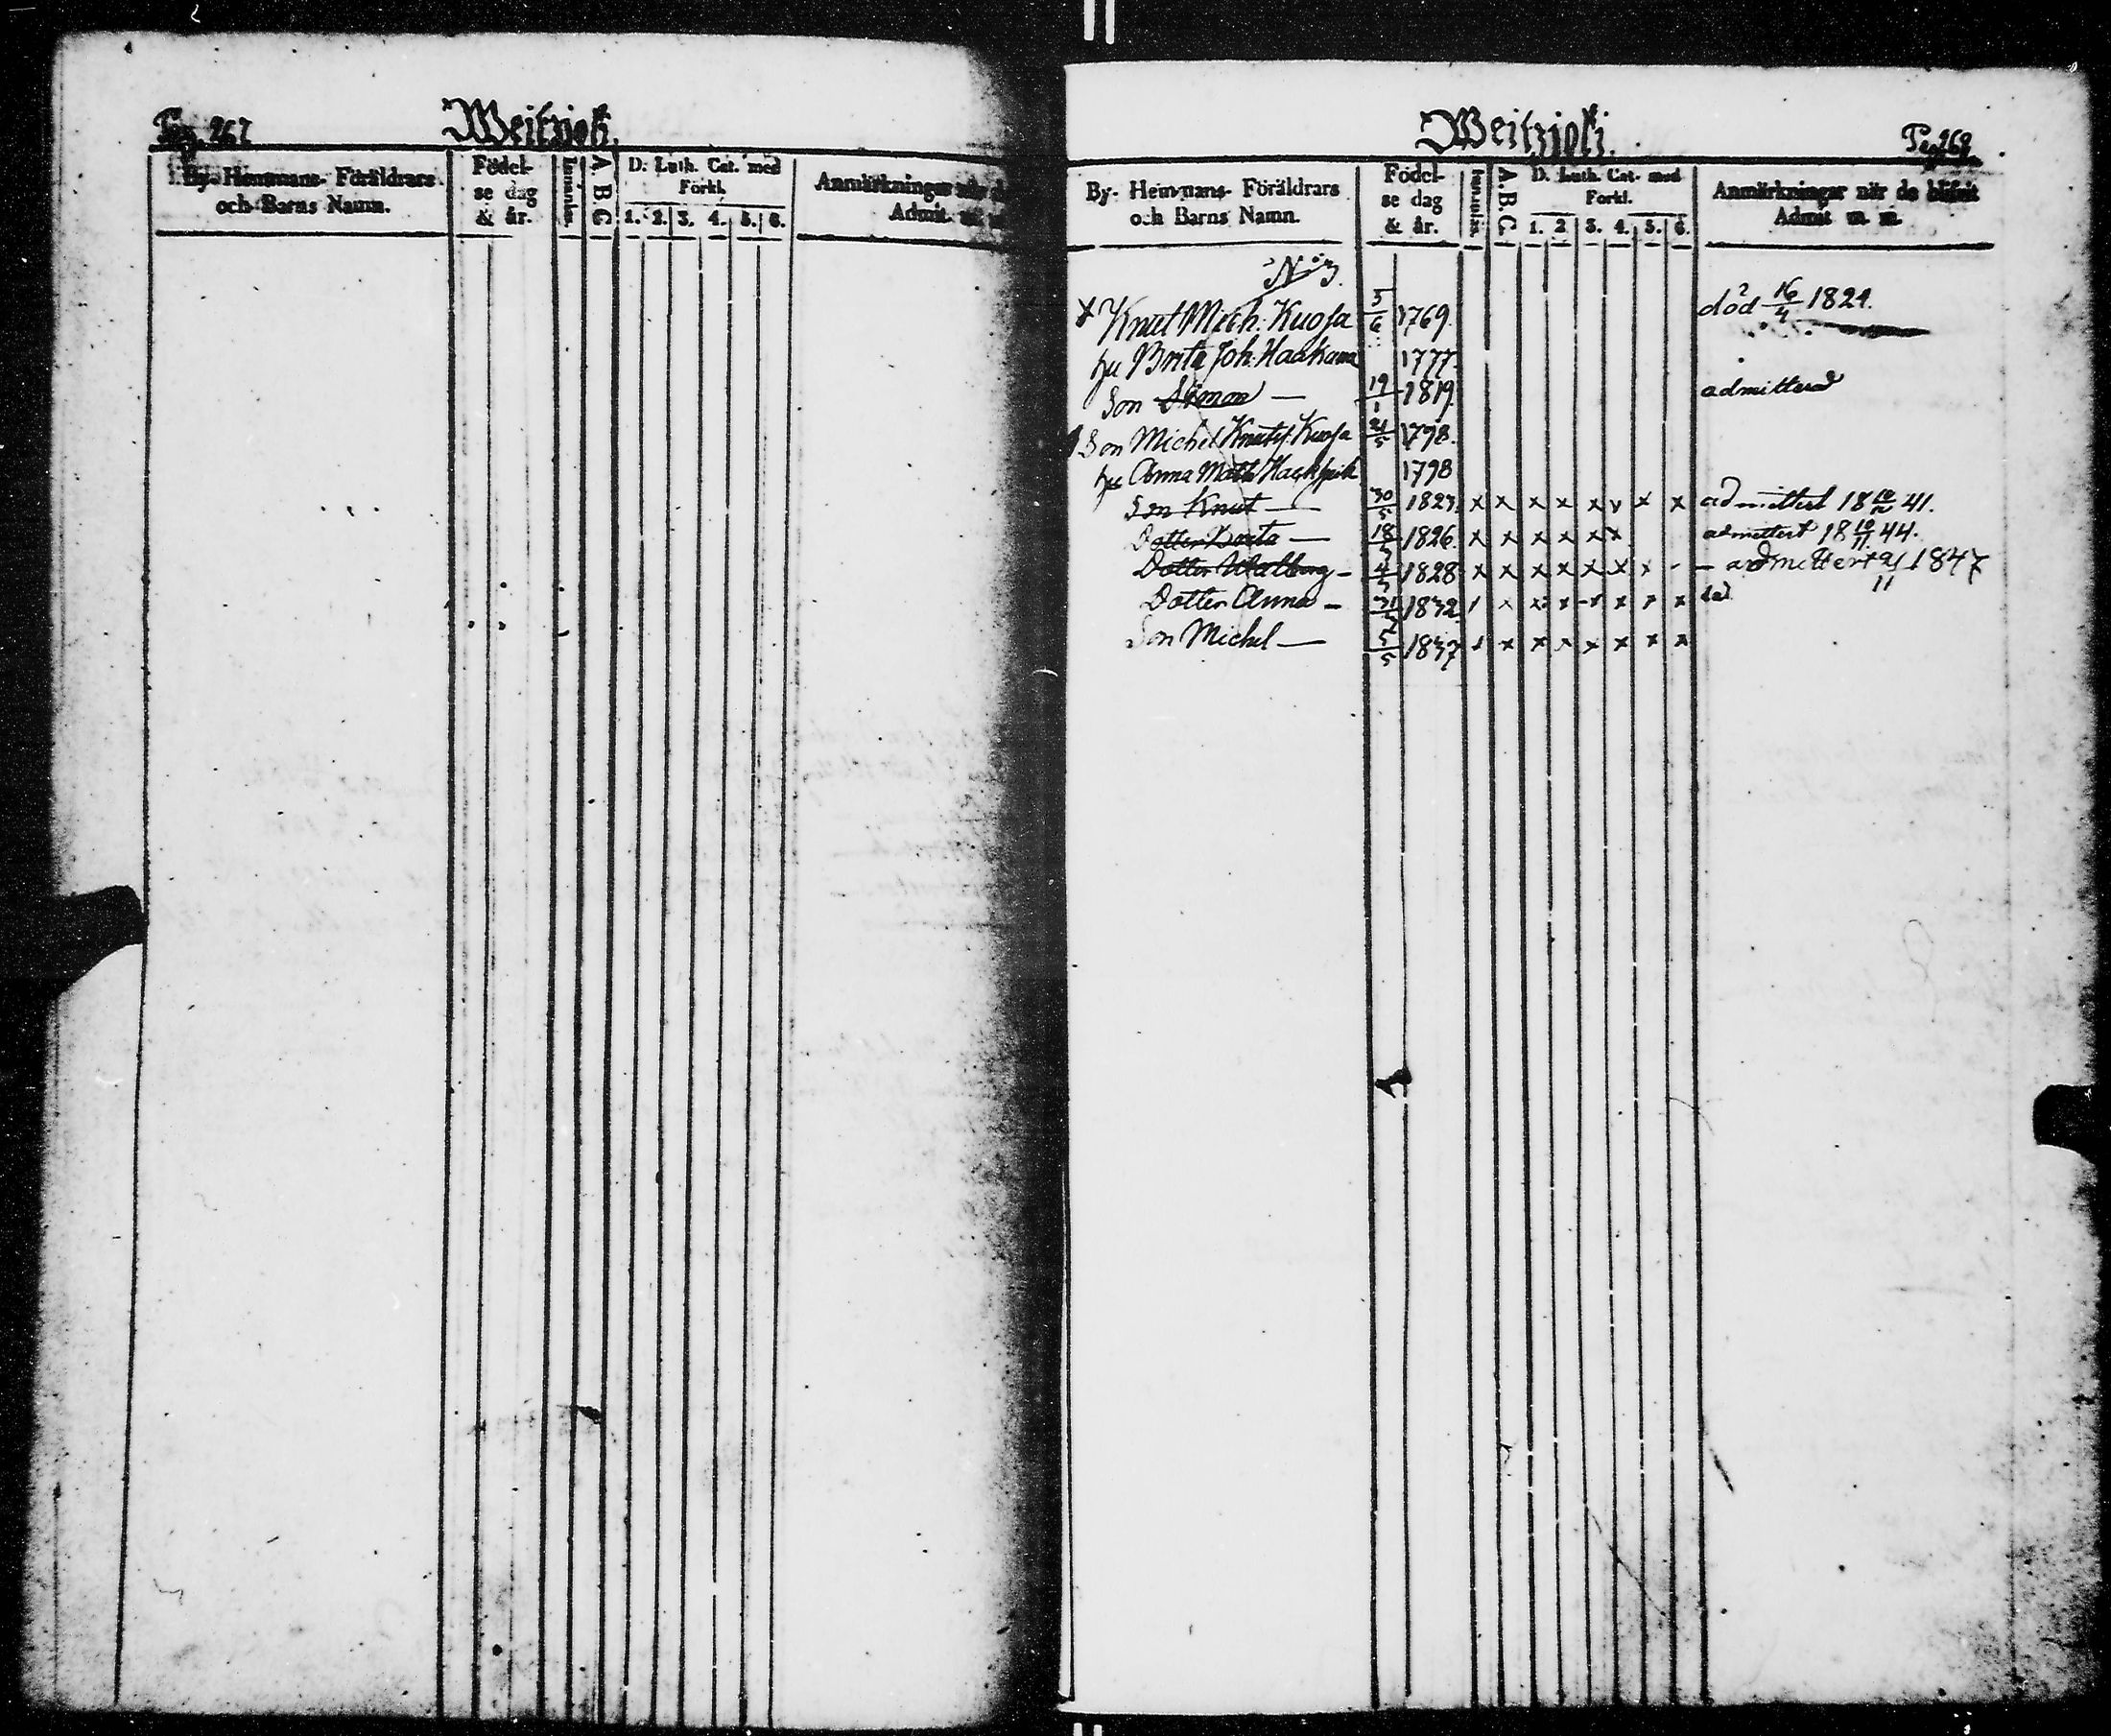 Pag. 267
Weitzjoki.
By- Hemmans- Föräldrars
och Barns Namn.
Födel-
se dag
& år.
Innanläs.
A B C
D. Luth. Cat. med
Förkl.
1. 2. 3. 4. 5. 6.
Anmärkningar när d
Admit.
Weitzjoki.
Pag. 268
By- Hemmans- Föräldrars
och Barns Namn.
Födel-
se dag
& år.
Innanläs.
A.B.C.
D. Luth. Cat. med
Forkl.
1. 2 3. 4. 5. 6.
Anmärkningar när de blifvit
Admit m. m.
N:o 3.
x Knut Mich. Kuosa 5/6 1769. död 16/4 1824.
hu Brita Joh. Haakana 1777.
Son Simon — 19/1 1819. admitterad
Son Michel Knutss. Kuosa 21/5 1798.
hu Anna Math. 1798
Son Knut — 30/5 1823. x x x x x v x x admittert 18 41.
Dotter Brita — 18/5 1826. x x x x x x admittert 18 10/11 44.
Dotter Walborg — 4/5 1828 x x x x x x x - — admittert 21/11 1847
Dotter Anna — 31/5 1832 / x x x x x x x
Son Michel — 5/5 1837 x x x x x x x x